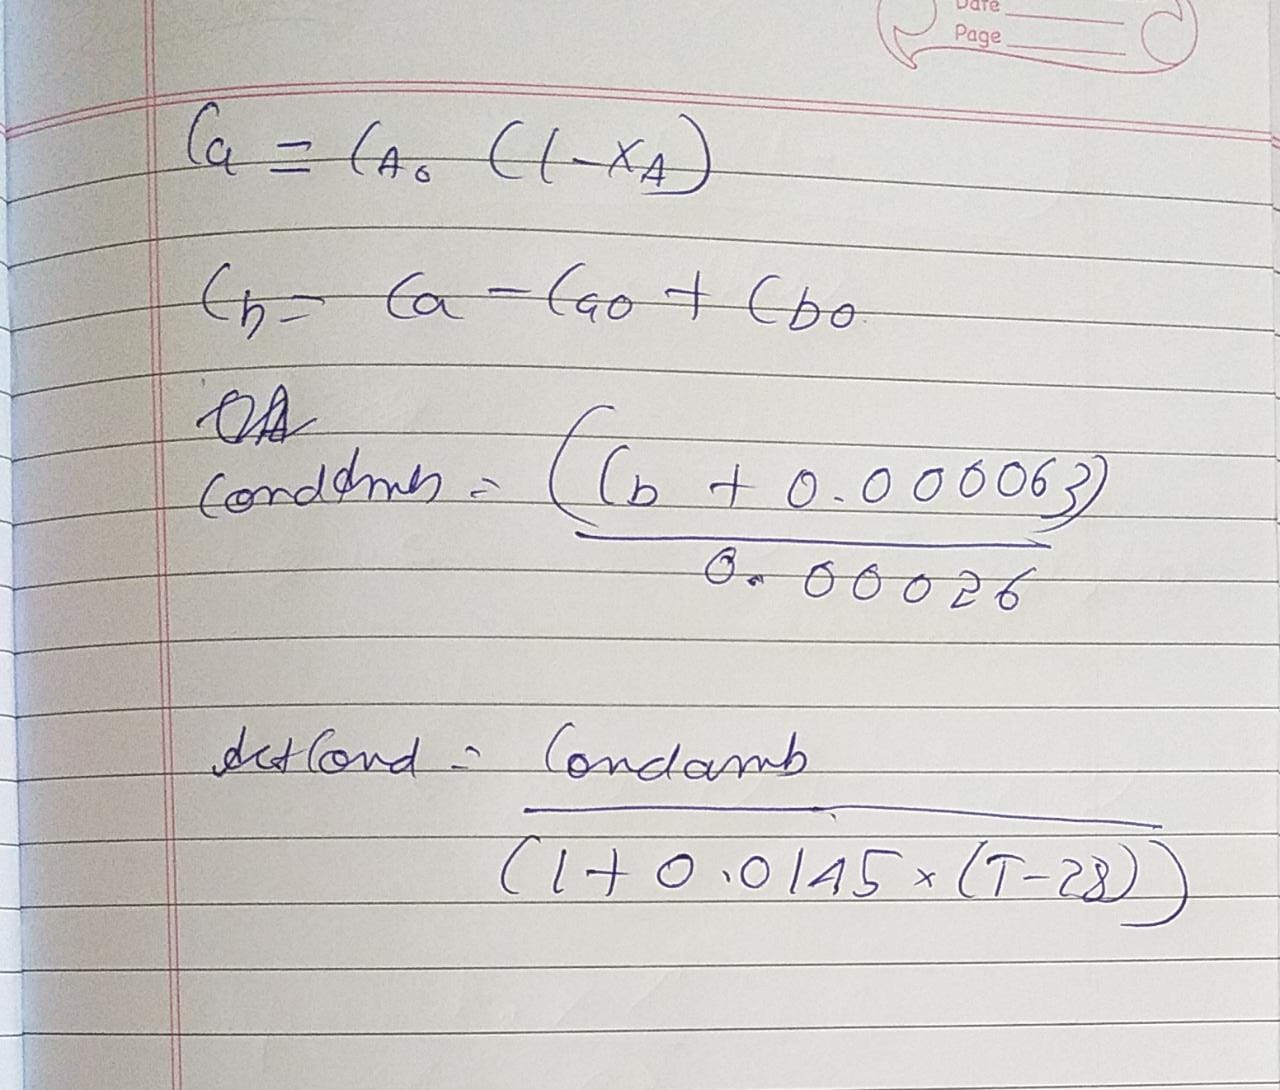 Date
Page
Ca = CA0 (1-XA)
Cb = Ca - Ca0 + Cb0
Condamb = (Cb + 0.000063)
0.00026
actCond = Condamb
(1 + 0.0145 × (T-28))